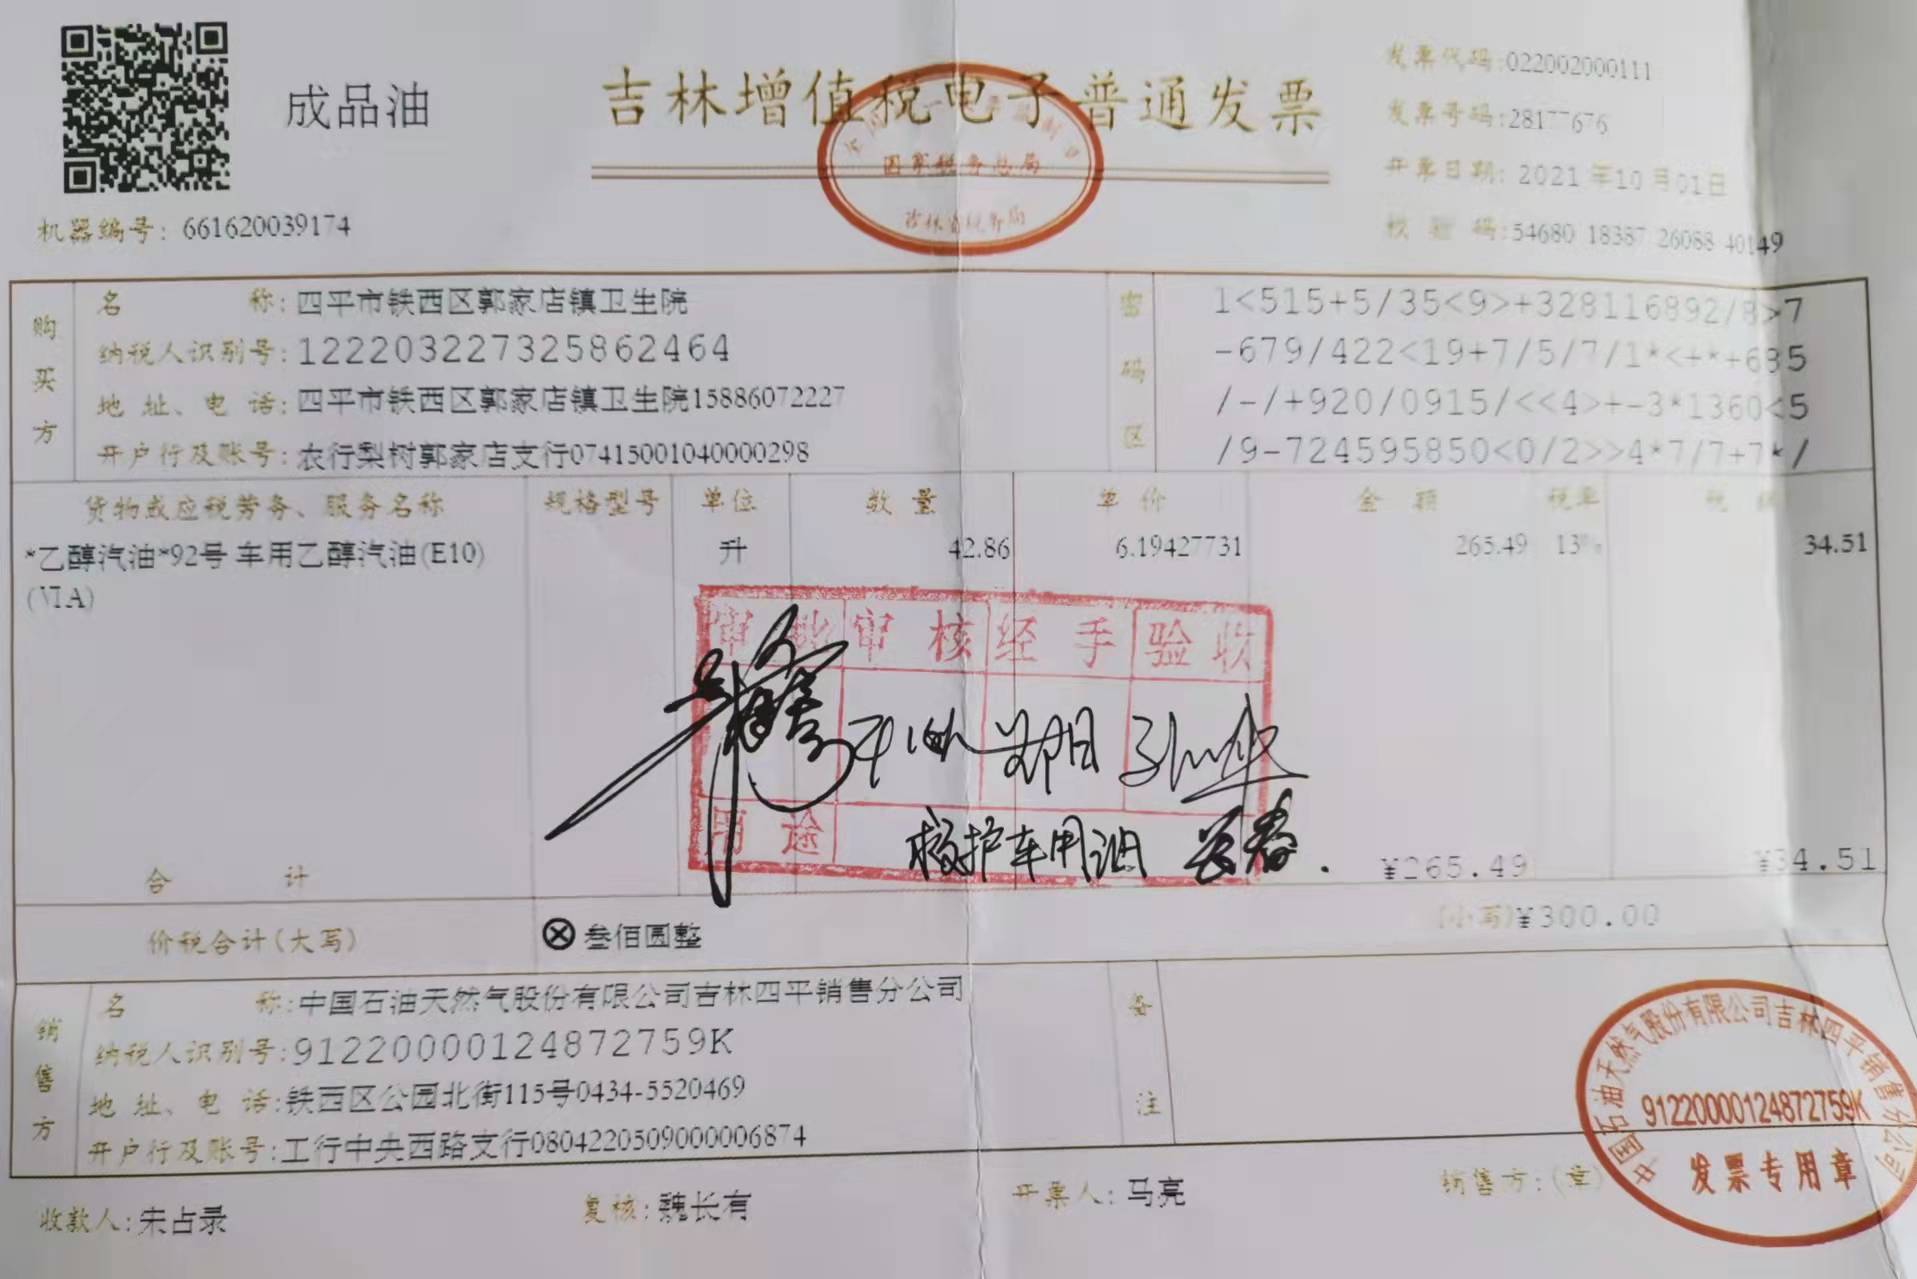 成品油
吉林增值税电子普通发票
国家税务总局
吉林省税务局
发票代码:022002000111
发票号码:28177676
开票日期: 2021年10月01日
校验码:54680 18387 26088 40149
机器编号: 661620039174
购买方
名称: 四平市铁西区郭家店镇卫生院
纳税人识别号:122203227325862464
地址、电话: 四平市铁西区郭家店镇卫生院15886072227
开户行及账号: 农行梨树郭家店支行07415001040000298
密码区
1<515+5/35<9>+328116892/8>7
-679/422<19+7/5/7/1*<+*+635
/-/+920/0915/<<4>+-3*1360<5
/9-724595850<0/2>>4*7/7+7*/
货物或应税劳务、服务名称 规格型号 单位 数量 单价 金额 税率 税额
*乙醇汽油*92号 车用乙醇汽油(E10) 升 42.86 6.19427731 265.49 13% 34.51
(VIA)
审批 审核 经手 验收
用途 车用油 长春.
合计 ¥265.49 ¥34.51
价税合计(大写) ⊗叁佰圆整 (小写)¥300.00
销售方
名称:中国石油天然气股份有限公司吉林四平销售分公司
纳税人识别号:91220000124872759K
地址、电话:铁西区公园北街115号0434-5520469
开户行及账号:工行中央西路支行0804220509000006874
备注
中国石油天然气股份有限公司吉林四平销售分公司
91220000124872759K
发票专用章
收款人:宋占录 复核:魏长有 开票人:马亮 销售方:(章)